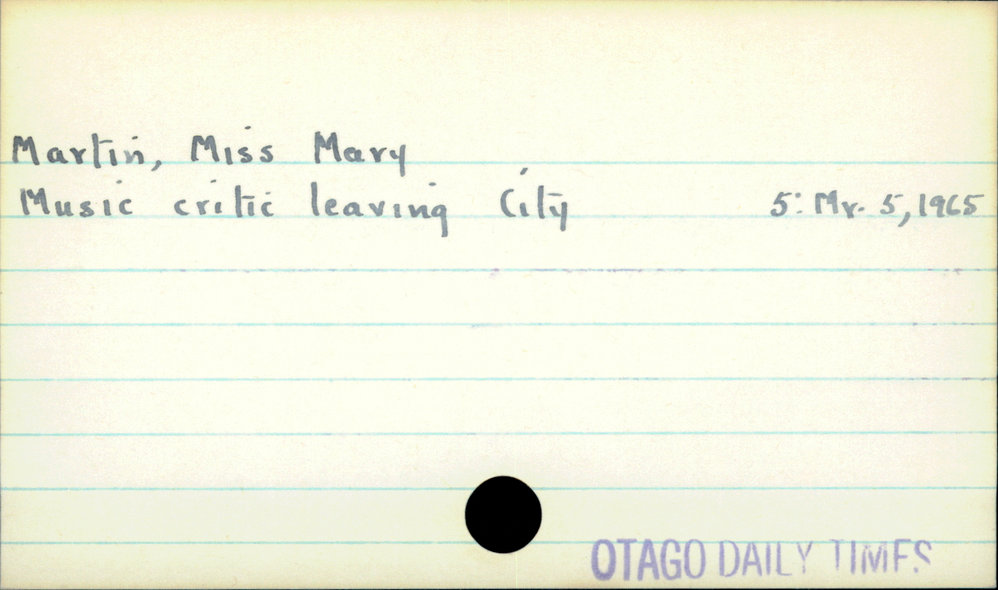 Martin, Miss Mary
Music critic leaving City 5: Mr. 5, 1965
OTAGO DAILY TIMES